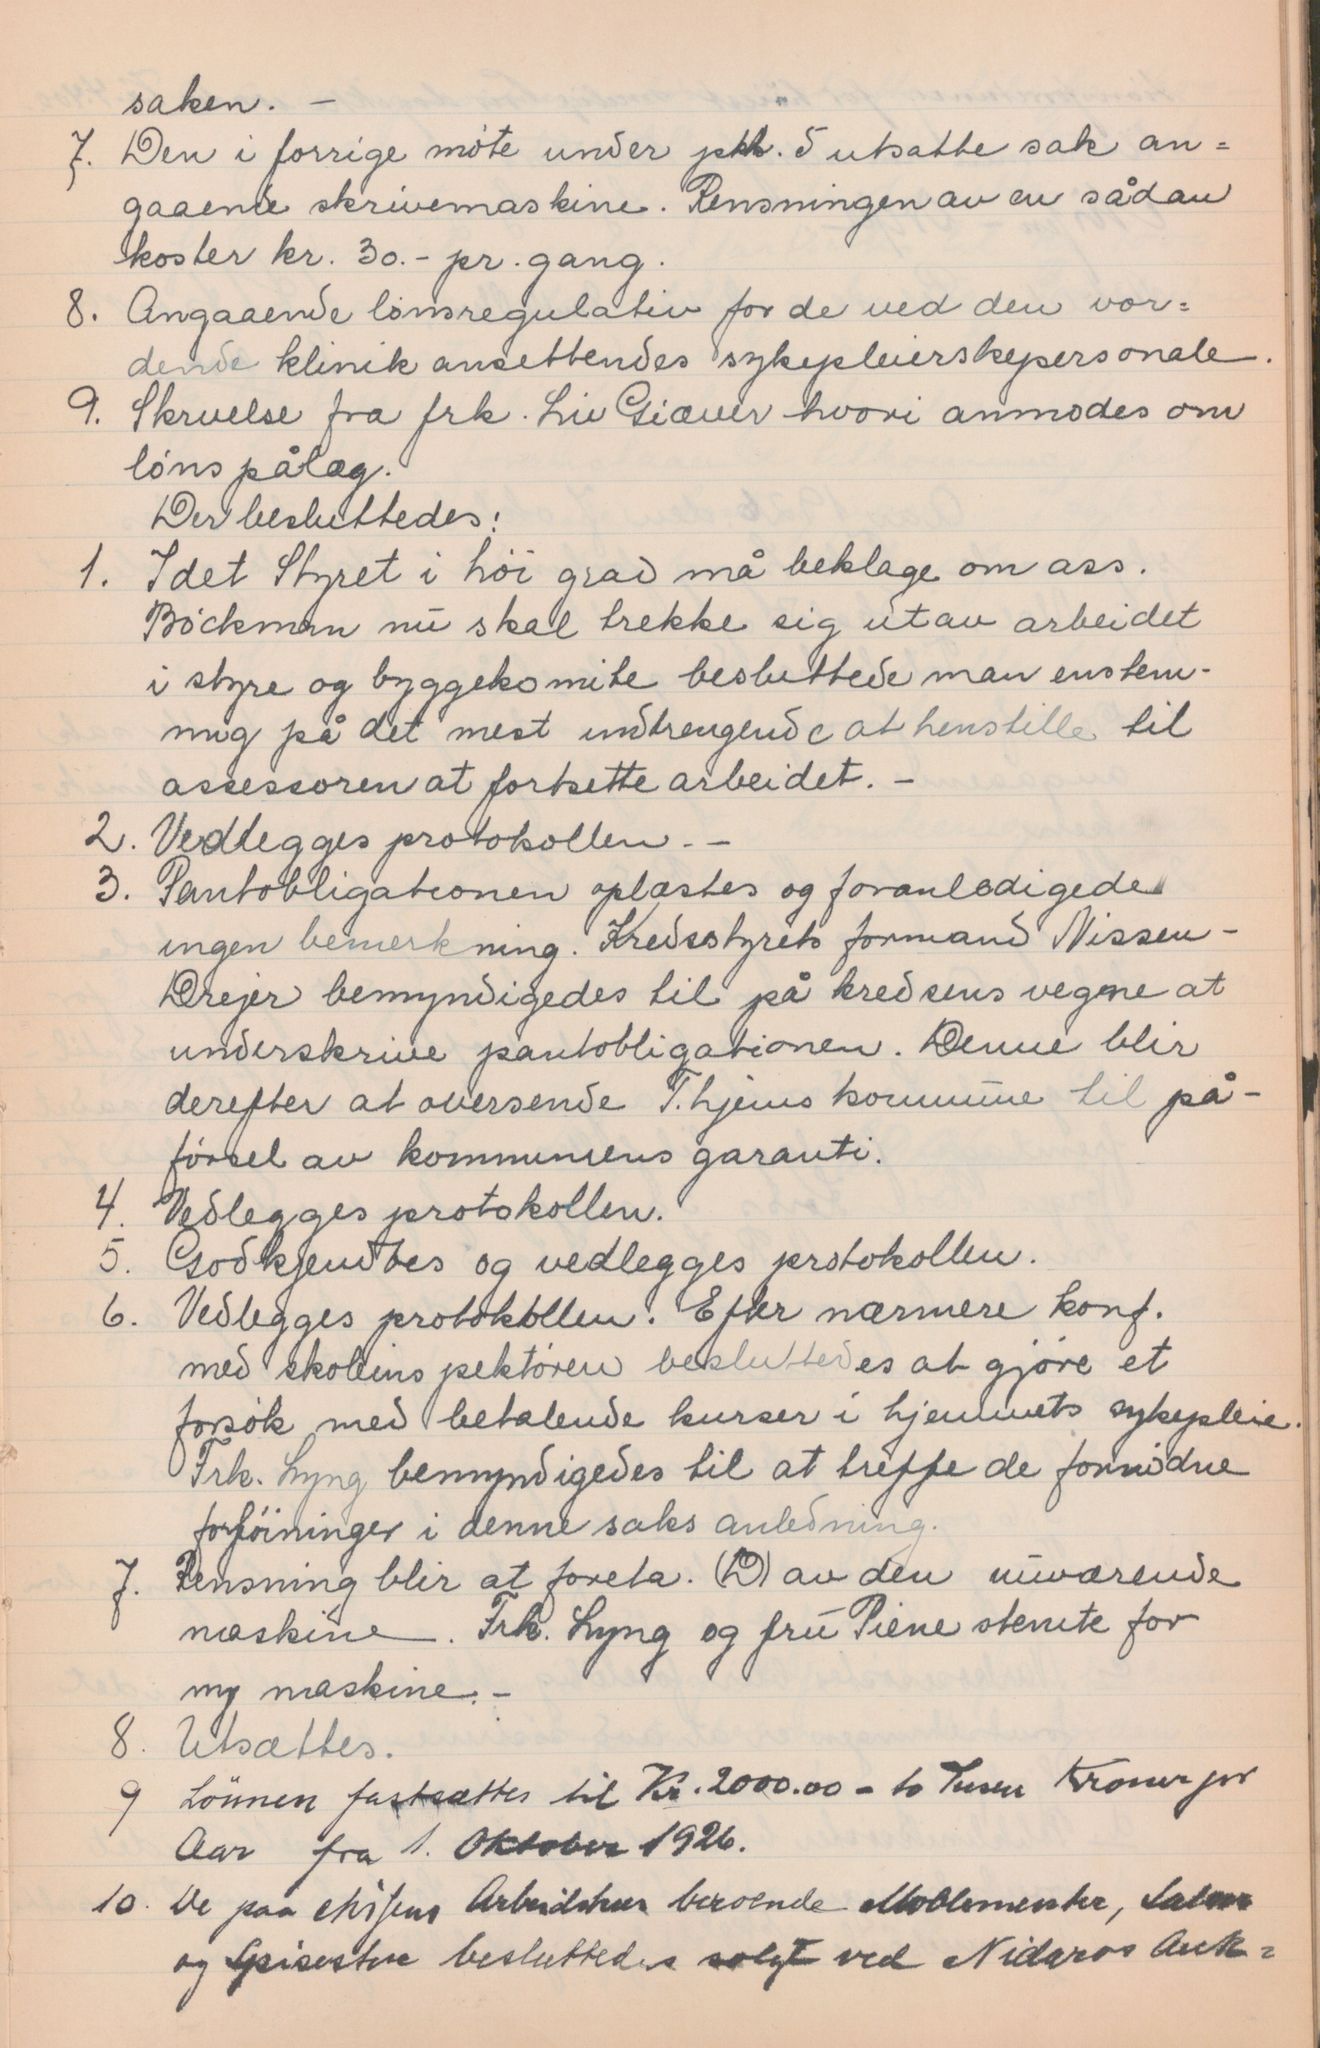 saken. –
7. Den i forrige møte under pkt. 5 utsatte sak an=
gaaende skrivemaskine. Rensningen av en sådan
koster kr. 30.- pr. gang.
8. Angaaende lønsregulativ for de ved den vor=
dende klinik ansettendes sykepleierskepersonale.
9. Skrivelse fra frk. Liv Giæver hvori anmodes om
lønspålæg.
Der besluttedes:
1. Idet Styret i høi grad må beklage om ass.
Bøckman nu skal trekke sig ut av arbeidet
i styre og byggekomite besluttede man enstem-
mig på det mest indtrengende at henstille til
assessoren at fortsette arbeidet. –
2. Vedlegges protokollen. –
3. Pantobligationen oplæstes og foranledigede
ingen bemerkning. Kredsstyrets formand Nissen-
Drejer bemyndigedes til på kredsens vegne at
underskrive pantobligationen. Denne blir
derefter at oversende T.hjems kommune til på-
førsel av kommunens garanti.
4. Vedlegges protokollen.
5. Godkjendtes og vedlegges protokollen.
6. Vedlegges protokollen. Efter nærmere konf.
med skoleinspektøren besluttedes at gjøre et
forsøk med betalende kurser i hjemmets sykepleie.
Frk. Lyng bemyndigedes til at treffe de fornødne
forføininger i denne saks anledning.
7. Rensning blir at foreta. (D) av den nuværende
maskine. Frk. Lyng og fru Piene stemte for
ny maskine. –
8. Utsættes.
9 Lønnen fastsættes til Kr. 2000.00 – to Tusen Kroner pr
Aar fra 1. Oktober 1926.
10. De paa Arbeidshus beroende Møblementer, Salon
og Spisestue besluttedes solgt ved Nidaros Auk=